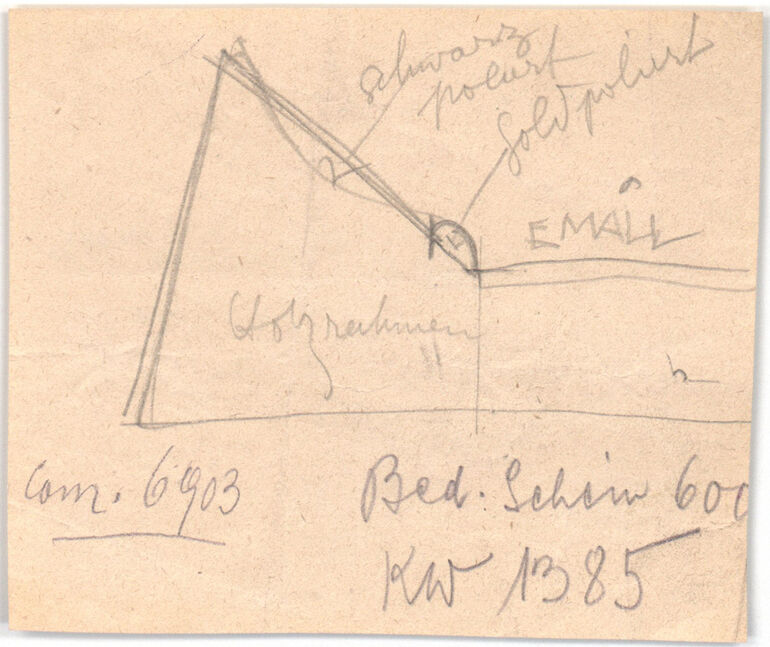 schwarz
poliert
Gold poliert
EMAIL
Holzrahmen
Com. 6903
Bed. Schein 600
KW 1385